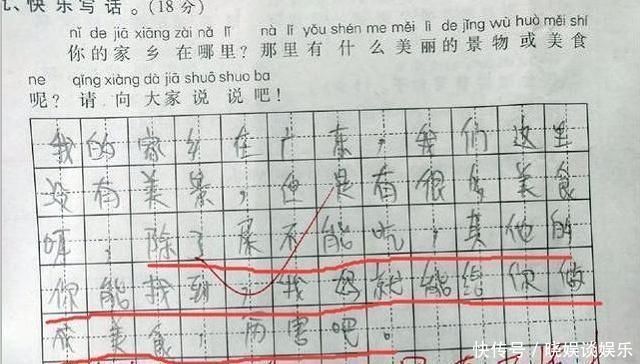 、快乐写话。(18分)
nǐ de jiā xiāng zài nǎ lǐ nà lǐ yǒu shén me měi lì de jǐng wù huò měi shí
你的家乡在哪里?那里有什么美丽的景物或美食
ne qǐng xiàng dà jiā shuō shuo ba
呢?请向大家说说吧!
我的家乡在广东,我们这里
没有美景,但是有很多美食
哦,除了屎不能吃,其他的
你能找到,我妈就能给你做
成美食,厉害吧。
快传号/晓娱谈娱乐